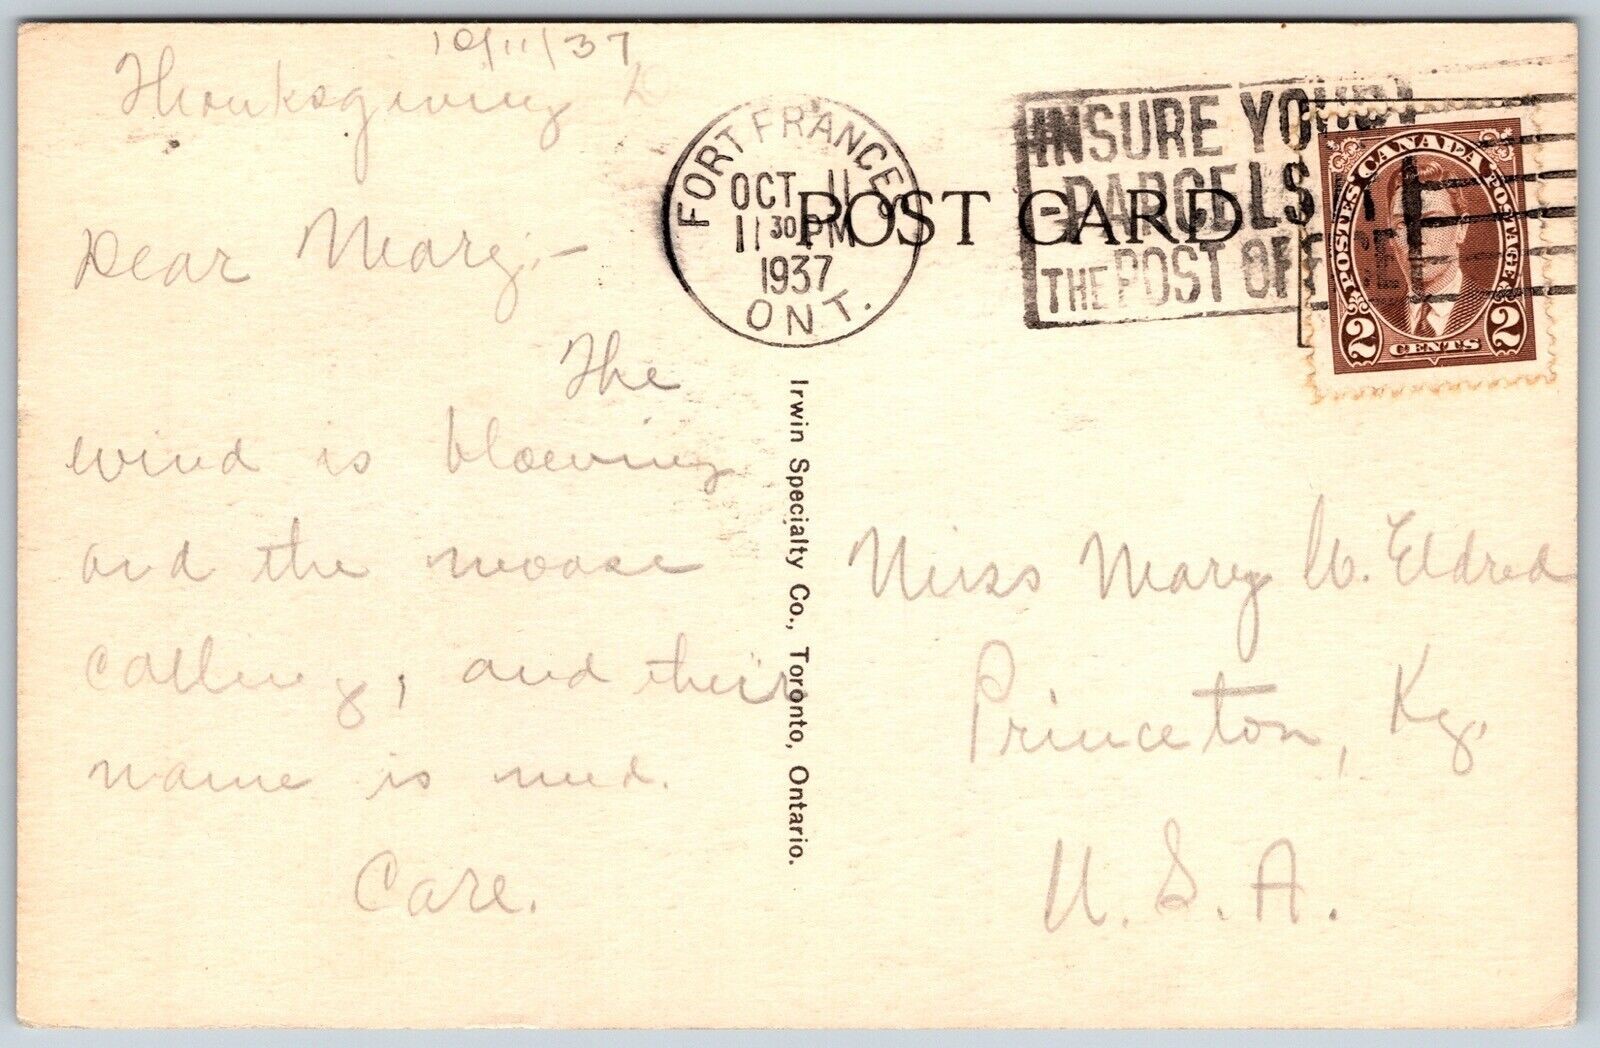 10/11/37
Thanksgiving
Dear Mary:-
The
wind is blowing
and the moose
calling, and their
name is mud.
Carl.
FORT FRANCES
OCT 11
11 30 PM
1937
ONT.
POST CARD
INSURE YOUR
PARCELS AT
THE POST OFFICE
POSTES CANADA POSTAGE
2 CENTS 2
Irwin Specialty Co., Toronto, Ontario.
Miss Mary W. Eldred
Princeton, Ky.
U.S.A.